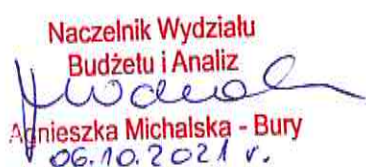 Naczelnik Wydziału
Budżetu i Analiz
Agnieszka Michalska - Bury
06.10.2021 r.